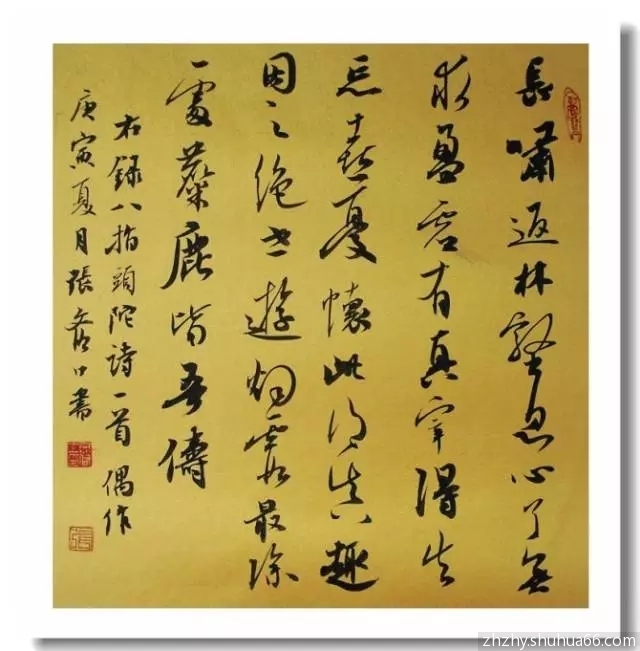 長嘯返林壑息心了無
求盈虛有真宰得失
忘喜憂懷此得真趣
因之絕世遊烟霞最深
處麋鹿皆吾儔
右錄八指頭陀詩一首偶作
庚寅夏月張書
zhzhy.shuhua66.com